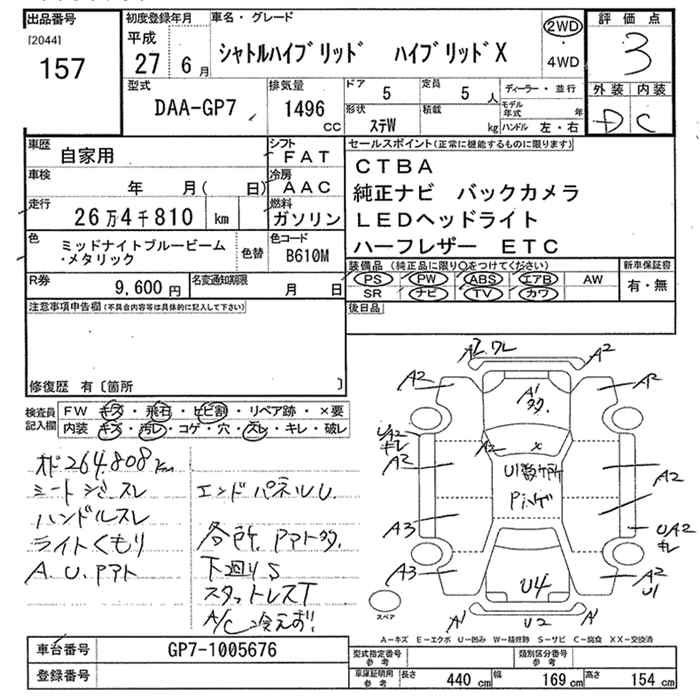 出品番号
[2044]
157
初度登録年月
平成
27 6 月
車名・グレード
シャトルハイブリッド ハイブリッドX
2WD
・
4WD
評価点
3
外装 内装
D C
型式
DAA-GP7
排気量
1496
CC
ドア 5
定員 5 人
形状
ステW
積載
kg
ディーラー・並行
モデル年式 年
ハンドル 左・右
車歴
自家用
シフト
FAT
車検
年 月( 日)
冷房
AAC
走行
26万4千810 km
燃料
ガソリン
色
ミッドナイトブルービーム
・メタリック
色替
色コード
B610M
R券
9,600 円
名変通知期限
月 日
セールスポイント(正常に機能するものに限ります)
CTBA
純正ナビ バックカメラ
LEDヘッドライト
ハーフレザー ETC
装備品(純正品に限り○をつけてください)
PS PW ABS エアB AW
SR ナビ TV カワ
新車保証書
有・無
後日品
注意事項申告欄(不具合内容等は具体的に記入して下さい)
修復歴 有〔箇所 〕
検査員
記入欄
FW キズ・飛石・ヒビ割・リペア跡・×要
内装 キズ・汚レ・コゲ・穴・スレ・キレ・破レ
オド264.808km
シートジミスレ
ハンドルスレ
ライトくもり
A.U.PPト
エンドパネルU.
各所.PPト多.
下廻りS
スタットレスT
A/C冷えず!
A2.ワレ
A2
A2
A2
A1
多.
UA2
キレ
A2
A2
×
U1数ヶ所
Pハゲ
A2
A3
UA2
キレ
A3
U4
A2
U1
A1
U2
A1
スペア
A-キズ E-エクボ U-凹み W-補修跡 S-サビ C-腐食 XX-交換済
車台番号
GP7-1005676
登録番号
型式指定番号
参考
類別区分番号
参考
車庫証明用
参考
長さ 440 cm
幅 169 cm
高さ 154 cm